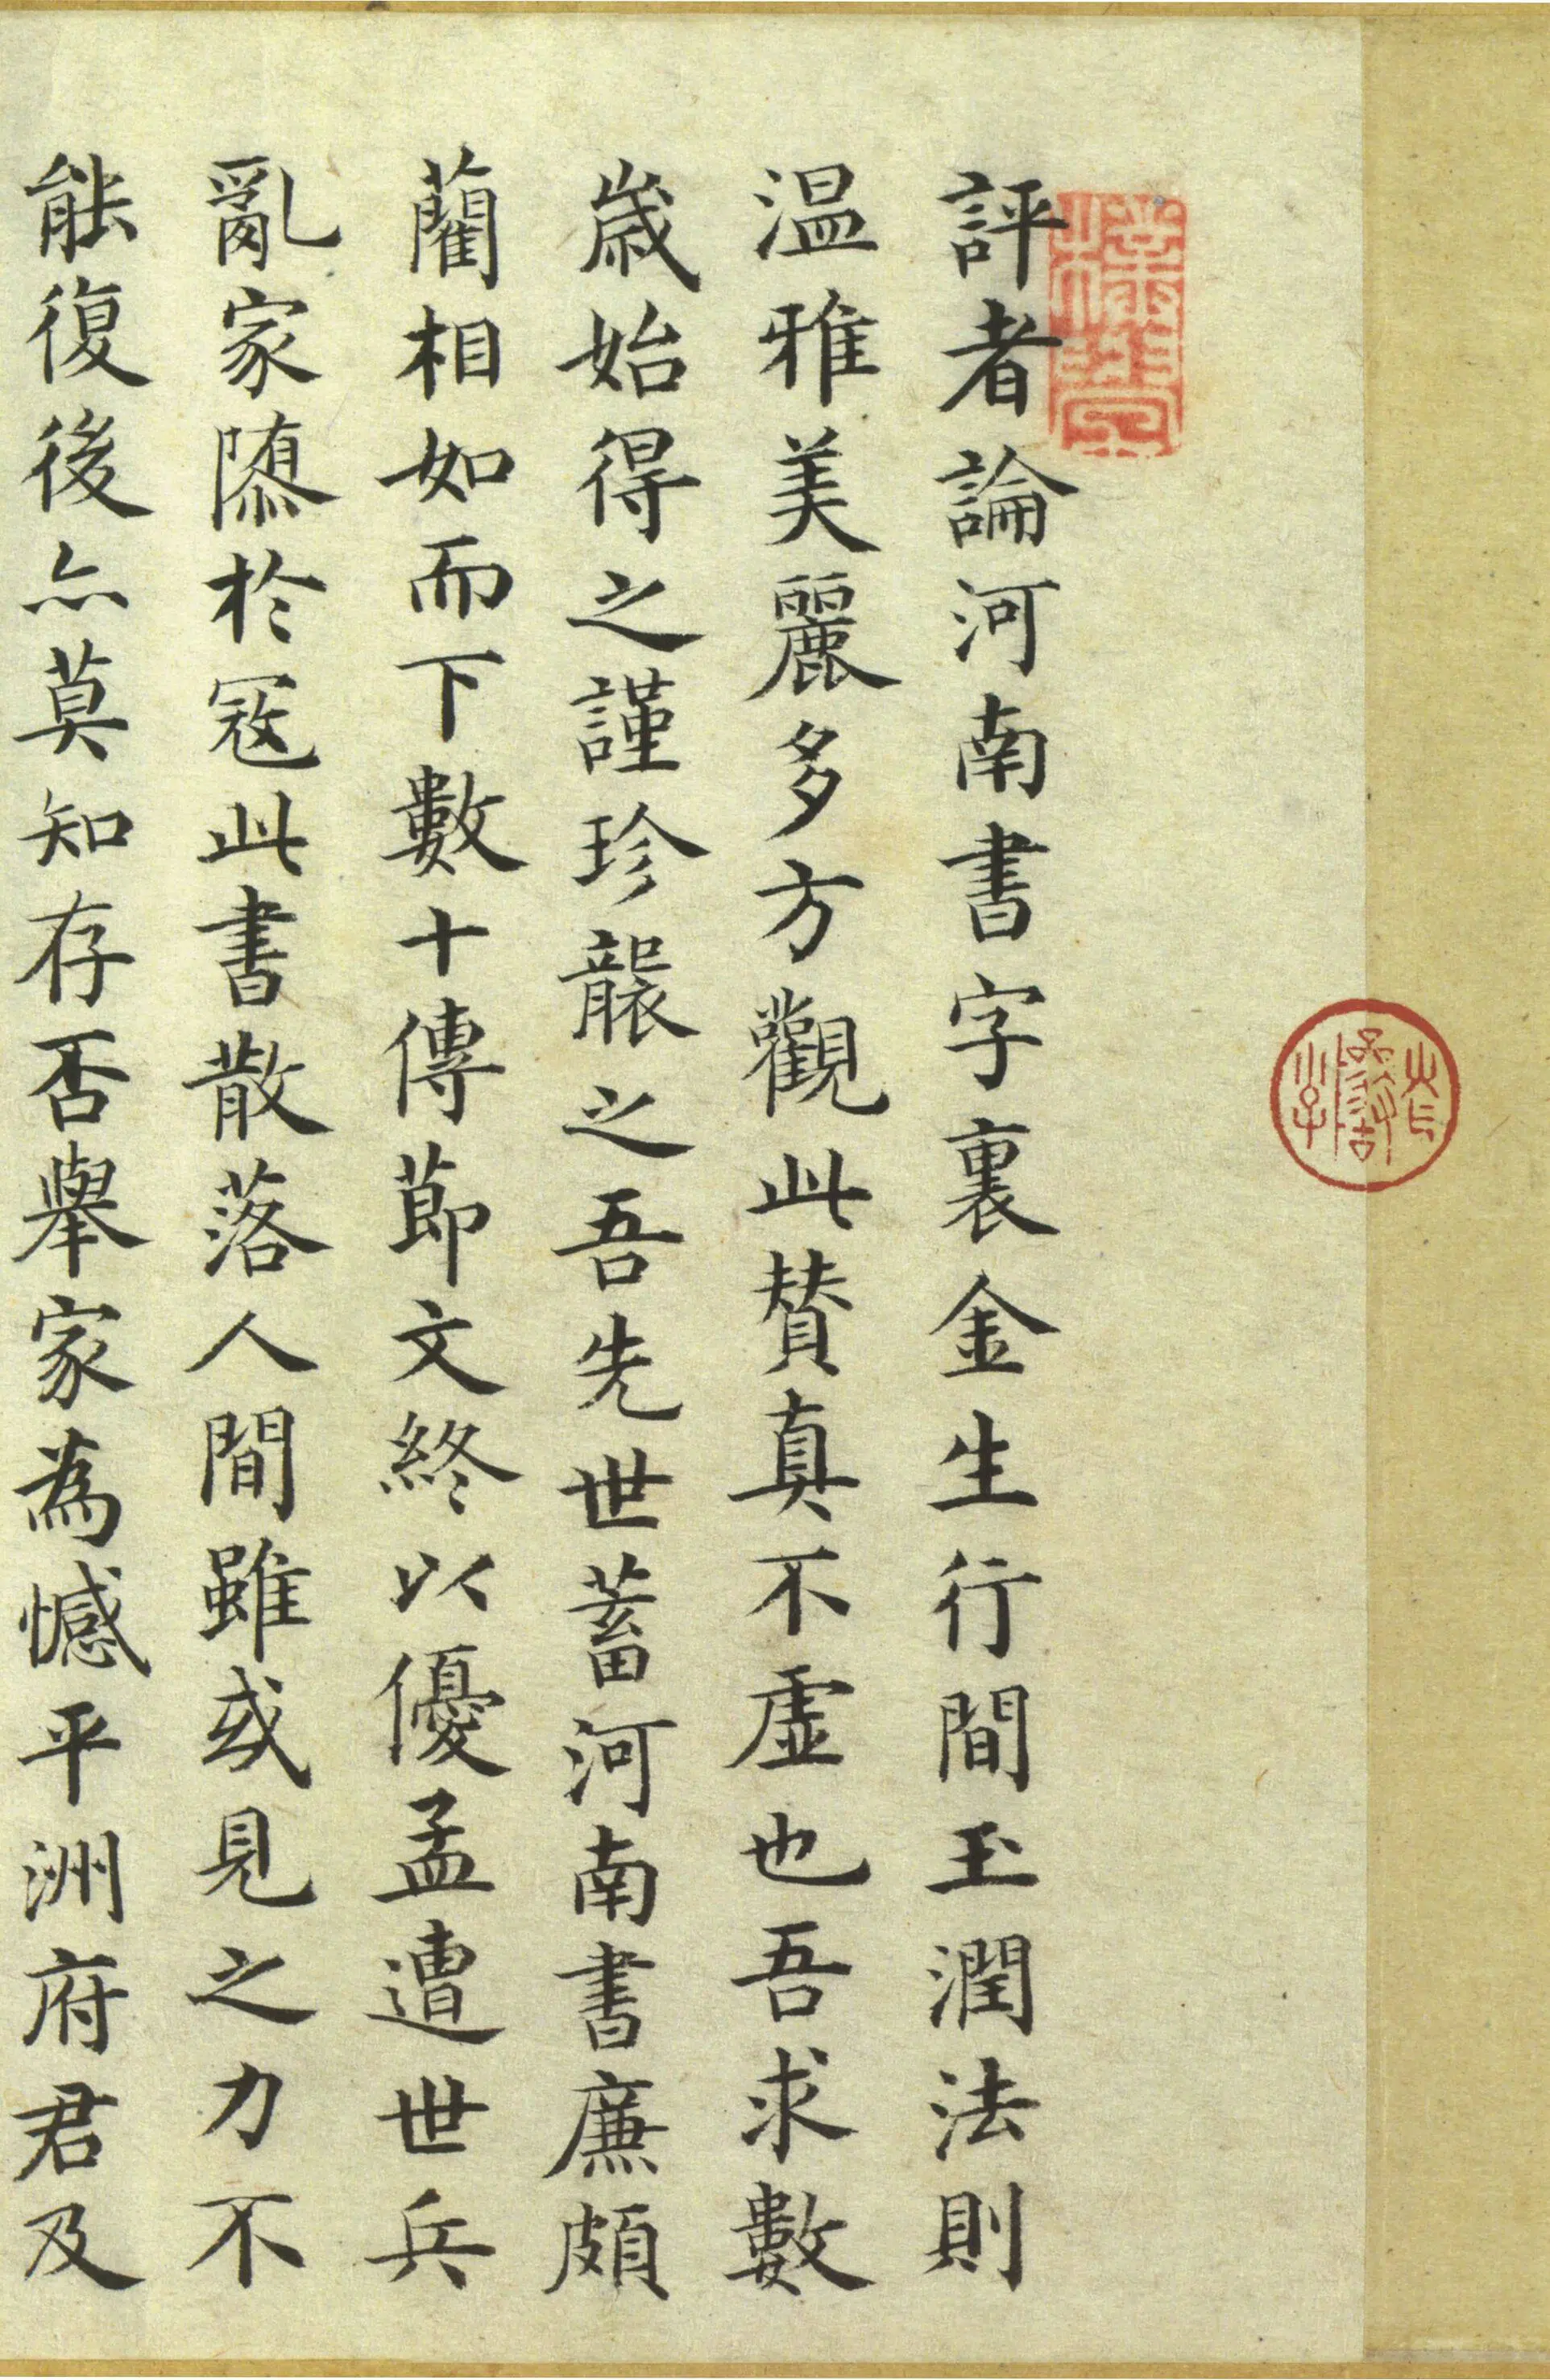 評者論河南書字裏金生行間玉潤法則
温雅美麗多方觀此賛真不虚也吾求數
歲始得之謹珍襲之吾先世蓄河南書廉頗
藺相如而下數十傳節文終以優孟遭世兵
亂家隳於冦此書散落人間雖或見之力不
能復後亦莫知存否舉家為憾平洲府君及